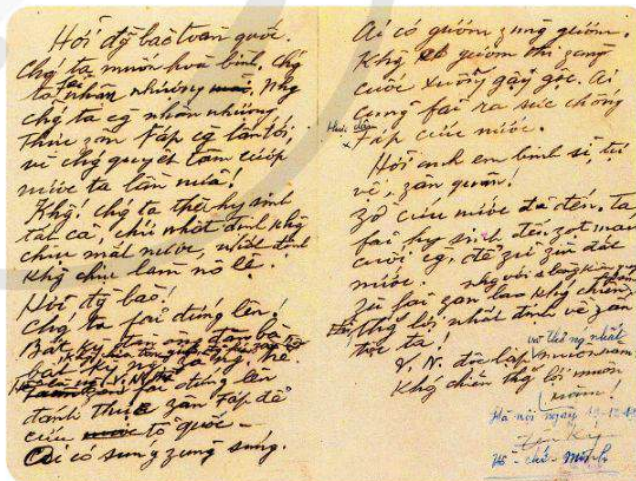 Hỡi đg̃ bào toàn quốc.
Chǵ ta muốn hoà bình, chǵ
ta fải nhân nhượng. Nhg
chǵ ta cg̀ nhân nhượng
thực zân Fáp cg̀ lấn tới,
vì chǵ quyết tâm cướp
nước ta lần nữa!
Khg! chǵ ta thà hy sinh
tất cả, chứ nhất định khg
chịu mất nước, nhất định
khg chịu làm nô lệ.
Hỡi đg̀ bào!
Chǵ ta fải đứng lên!
Bất kỳ đàn ông đàn bà
bất kỳ ng̀ già ng̀ trẻ.
fải đứng lên
đánh thực zân Fáp để
cứu tổ quốc –
Ai có súng zùng súng.
Ai có gươm zùng gươm.
Khg có gươm thì zùng
cuốc xuổng gậy gộc. Ai
cũng fải ra sức chống
thực zân Fáp cứu nước.
Hỡi anh em binh sĩ, tự
vệ, zân quân!
Zờ cứu nước đã đến. Ta
fải hy sinh đến zọt máu
cuối cg̀, để zữ zìn đất
nước.
Zù fải zan lao khǵ chiến,
thǵ lợi nhất định về zân
tộc ta!
và thống nhất
V. N. độc lập muôn năm
Khǵ chiến thǵ lợi muôn
năm!
Hà nội ngày 19-12-46
Hồ-chí-Minh